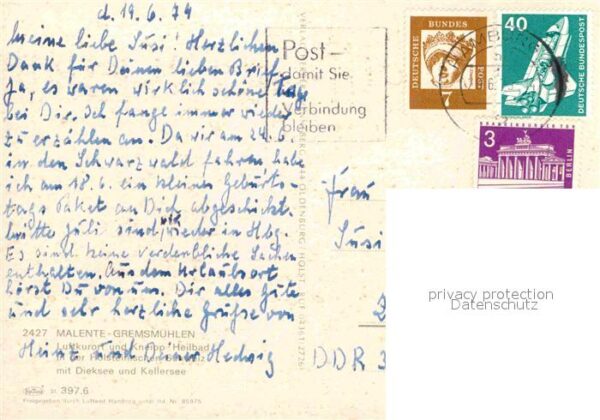 d. 19.6.79
Meine liebe Susi! Herzlichen
Dank für Deinen lieben Brief.
Ja, es waren wirklich schöne Tage
bei Dir. Ich fange immer wieder
zu erzählen an. Da wir am 24.6.
in den Schwarzwald fahren, habe
ich am 18.6. ein kleines Geburts-
tags Paket an Dich abgeschickt.
Mitte Juli sind wir wieder in Hbg.
Es sind keine verderbliche Sachen
enthalten. Aus dem Urlaubsort
hörst Du von uns. Dir alles Gute
und sehr herzliche Grüße von
Heinz und Deiner Hedwig
2427 MALENTE-GREMSMÜHLEN
Luftkurort und Kneipp-Heilbad
in der Holsteinischen Schweiz
mit Dieksee und Kellersee
397.6
Post-
damit Sie
Verbindung
bleiben
DEUTSCHE BUNDES POST
7
40
DEUTSCHE BUNDESPOST
3
BERLIN
Frau
Susi
DDR 3
privacy protection
Datenschutz